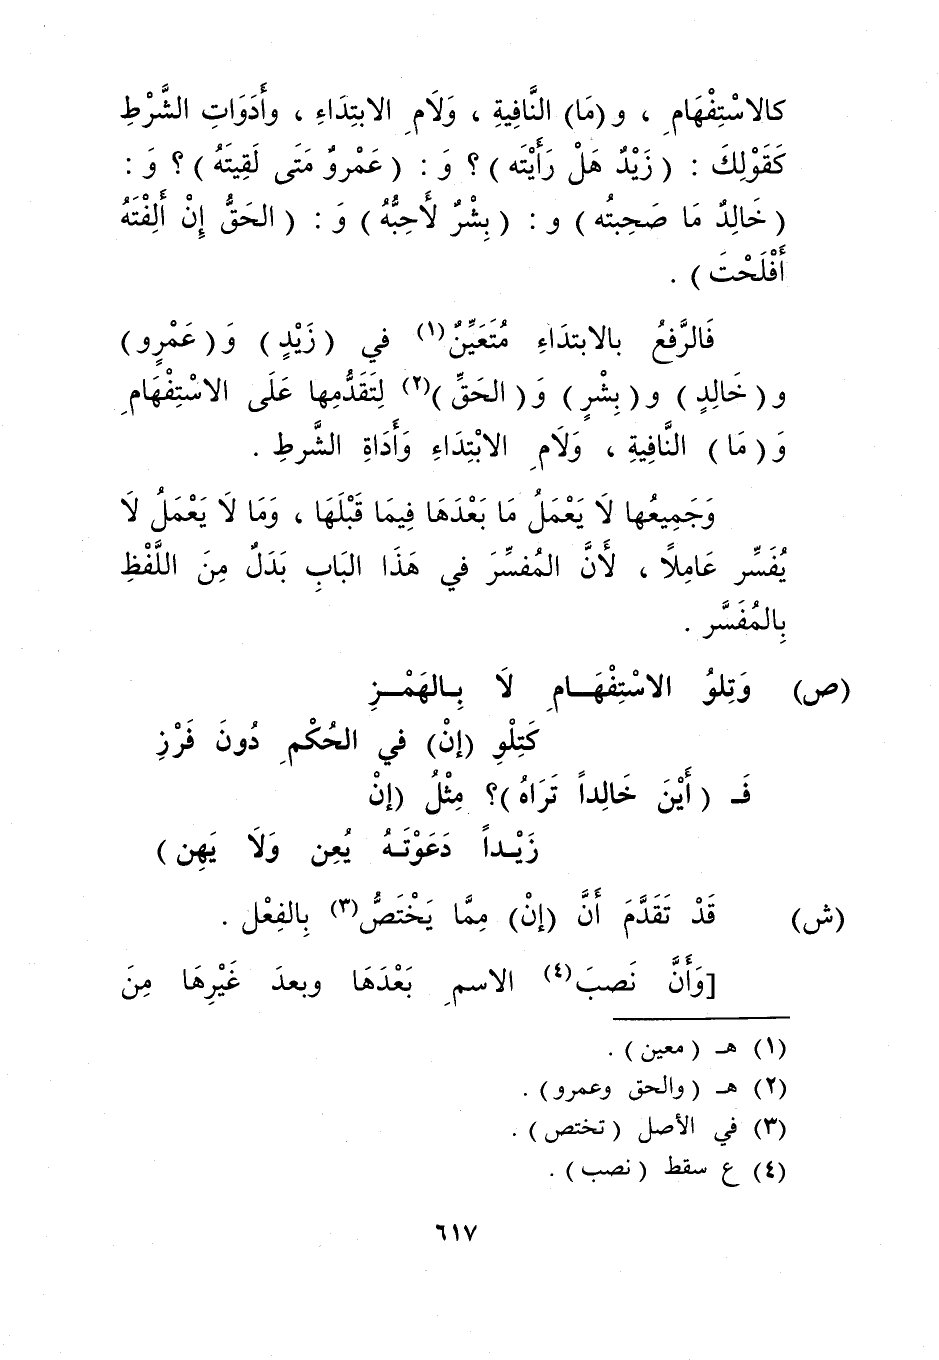 كالاسْتِفْهَامِ ، و (مَا) النَّافِيةِ ، وَلَامِ الابتِدَاءِ ، وأَدَوَاتِ الشَّرْطِ
كَقَوْلِكَ : ( زَيْدٌ هَلْ رَأَيْتَه ) ؟ وَ : ( عَمْروٌ مَتَى لَقِيتَهُ ) ؟ وَ :
( خَالِدٌ مَا صَحِبتُه ) و : ( بِشْرٌ لأَحِبُّهُ ) وَ : ( الحَقُّ إِنْ أَلِفْتَهُ
أَفْلَحْتَ ) .
فَالرَّفعُ بالابتدَاءِ مُتَعَيِّنٌ(١) في ( زَيْدٍ ) وَ ( عَمْرٍو )
و ( خَالِدٍ ) و ( بِشْرٍ ) وَ ( الحَقِّ )(٢) لِتَقَدُّمِها عَلَى الاسْتِفْهَامِ
وَ ( مَا ) النَّافِيةِ ، وَلَامِ الابْتِدَاءِ وَأَدَاةِ الشَّرطِ .
وَجَمِيعُها لَا يَعْمَلُ مَا بَعْدَهَا فِيمَا قَبْلَهَا ، وَمَا لَا يَعْمَلُ لَا
يُفَسِّر عَامِلاً ، لأَنَّ المُفسِّرَ في هَذَا البَابِ بَدَلٌ مِنَ اللَّفْظِ
بِالمُفَسَّر .
(ص) وَتِلوُ الاسْتِفْهَـــامِ لَا بِـالهَمْــزِ
كَتِلْوِ (إنْ) في الحُكْمِ دُونَ فَرْزِ
فَـ ( أَيْنَ خَالِداً تَرَاهُ )؟ مِثْلُ (إنْ
زَيْـداً دَعَوْتَـهُ يُعِن وَلَا يَهِن )
(ش) قَدْ تَقَدَّمَ أَنَّ (إنْ) مِمَّا يَخْتَصُّ(٣) بِالفِعْلِ .
[وَأَنَّ نَصبَ(٤) الاسمِ بَعْدَهَا وبعدَ غَيْرِهَا مِنَ
(١) هـ ( معين ) .
(٢) هـ ( والحق وعمرو ) .
(٣) في الأصل ( تختص ) .
(٤) ع سقط ( نصب ) .
٦١٧